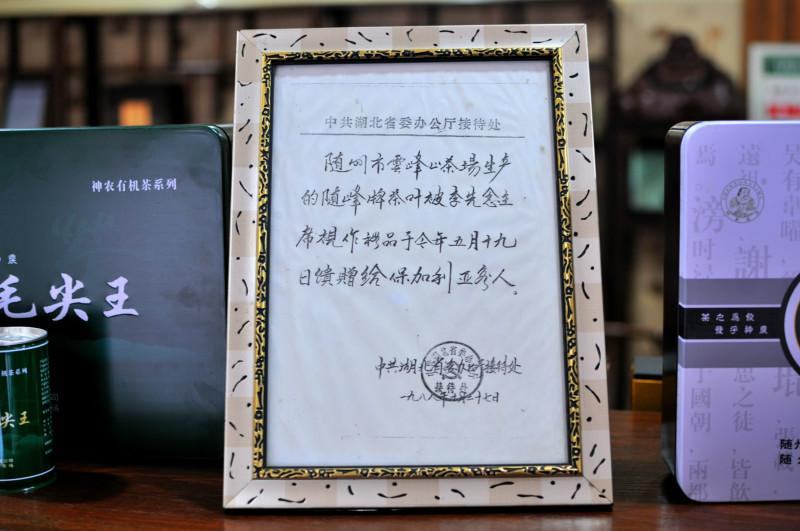 中共湖北省委办公厅接待处
随州市雲峰山茶場生产
的随峰牌茶叶被李先念主
席視作禮品于今年五月十九
日馈赠给保加利亚客人。
中共湖北省委办公厅接待处
接待处
神农有机茶系列
毛尖王
机茶系列
尖王
茶之為飲
發乎神農
謝
思之徒
皆飲
于國朝
兩都
随州
随